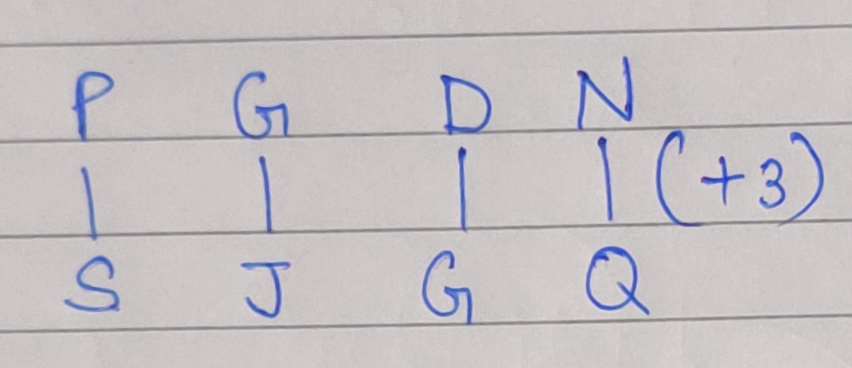 P G D N
| | | | (+3)
S J G Q